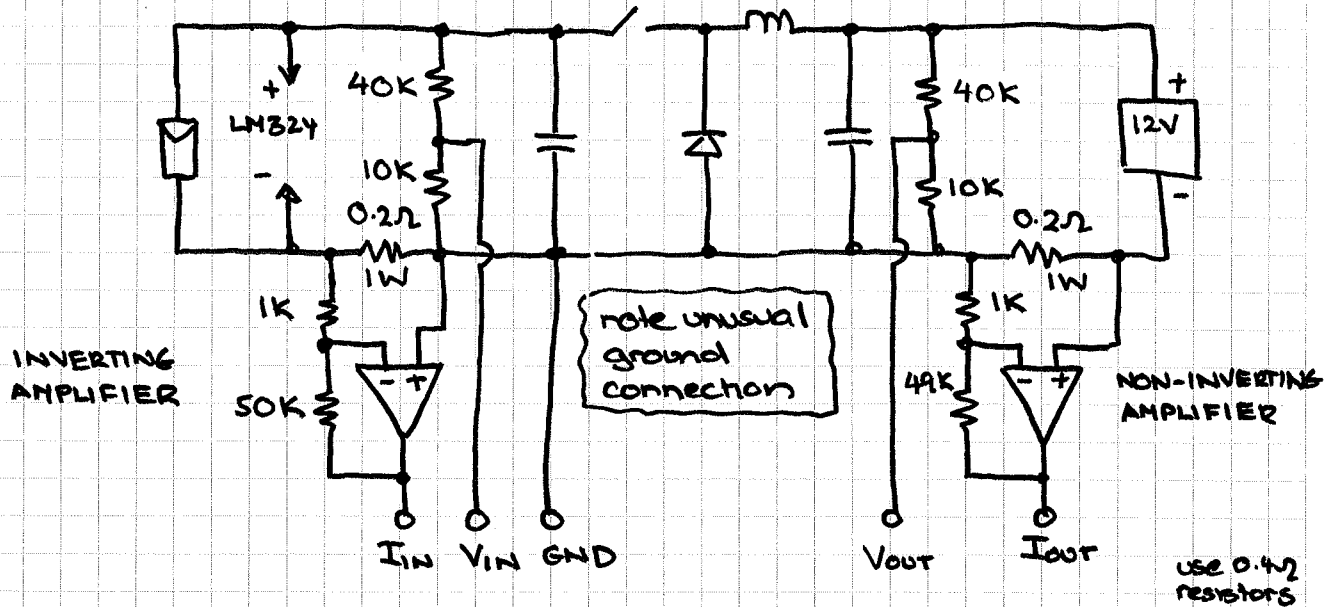 +
LM324
-
40K
10K
0.2Ω
1W
1K
50K
- +
INVERTING
AMPLIFIER
note unusual
ground
connection
40K
10K
0.2Ω
1W
1K
49K
- +
NON-INVERTING
AMPLIFIER
+
12V
-
IIN
VIN
GND
VOUT
IOUT
use 0.4Ω
resistors